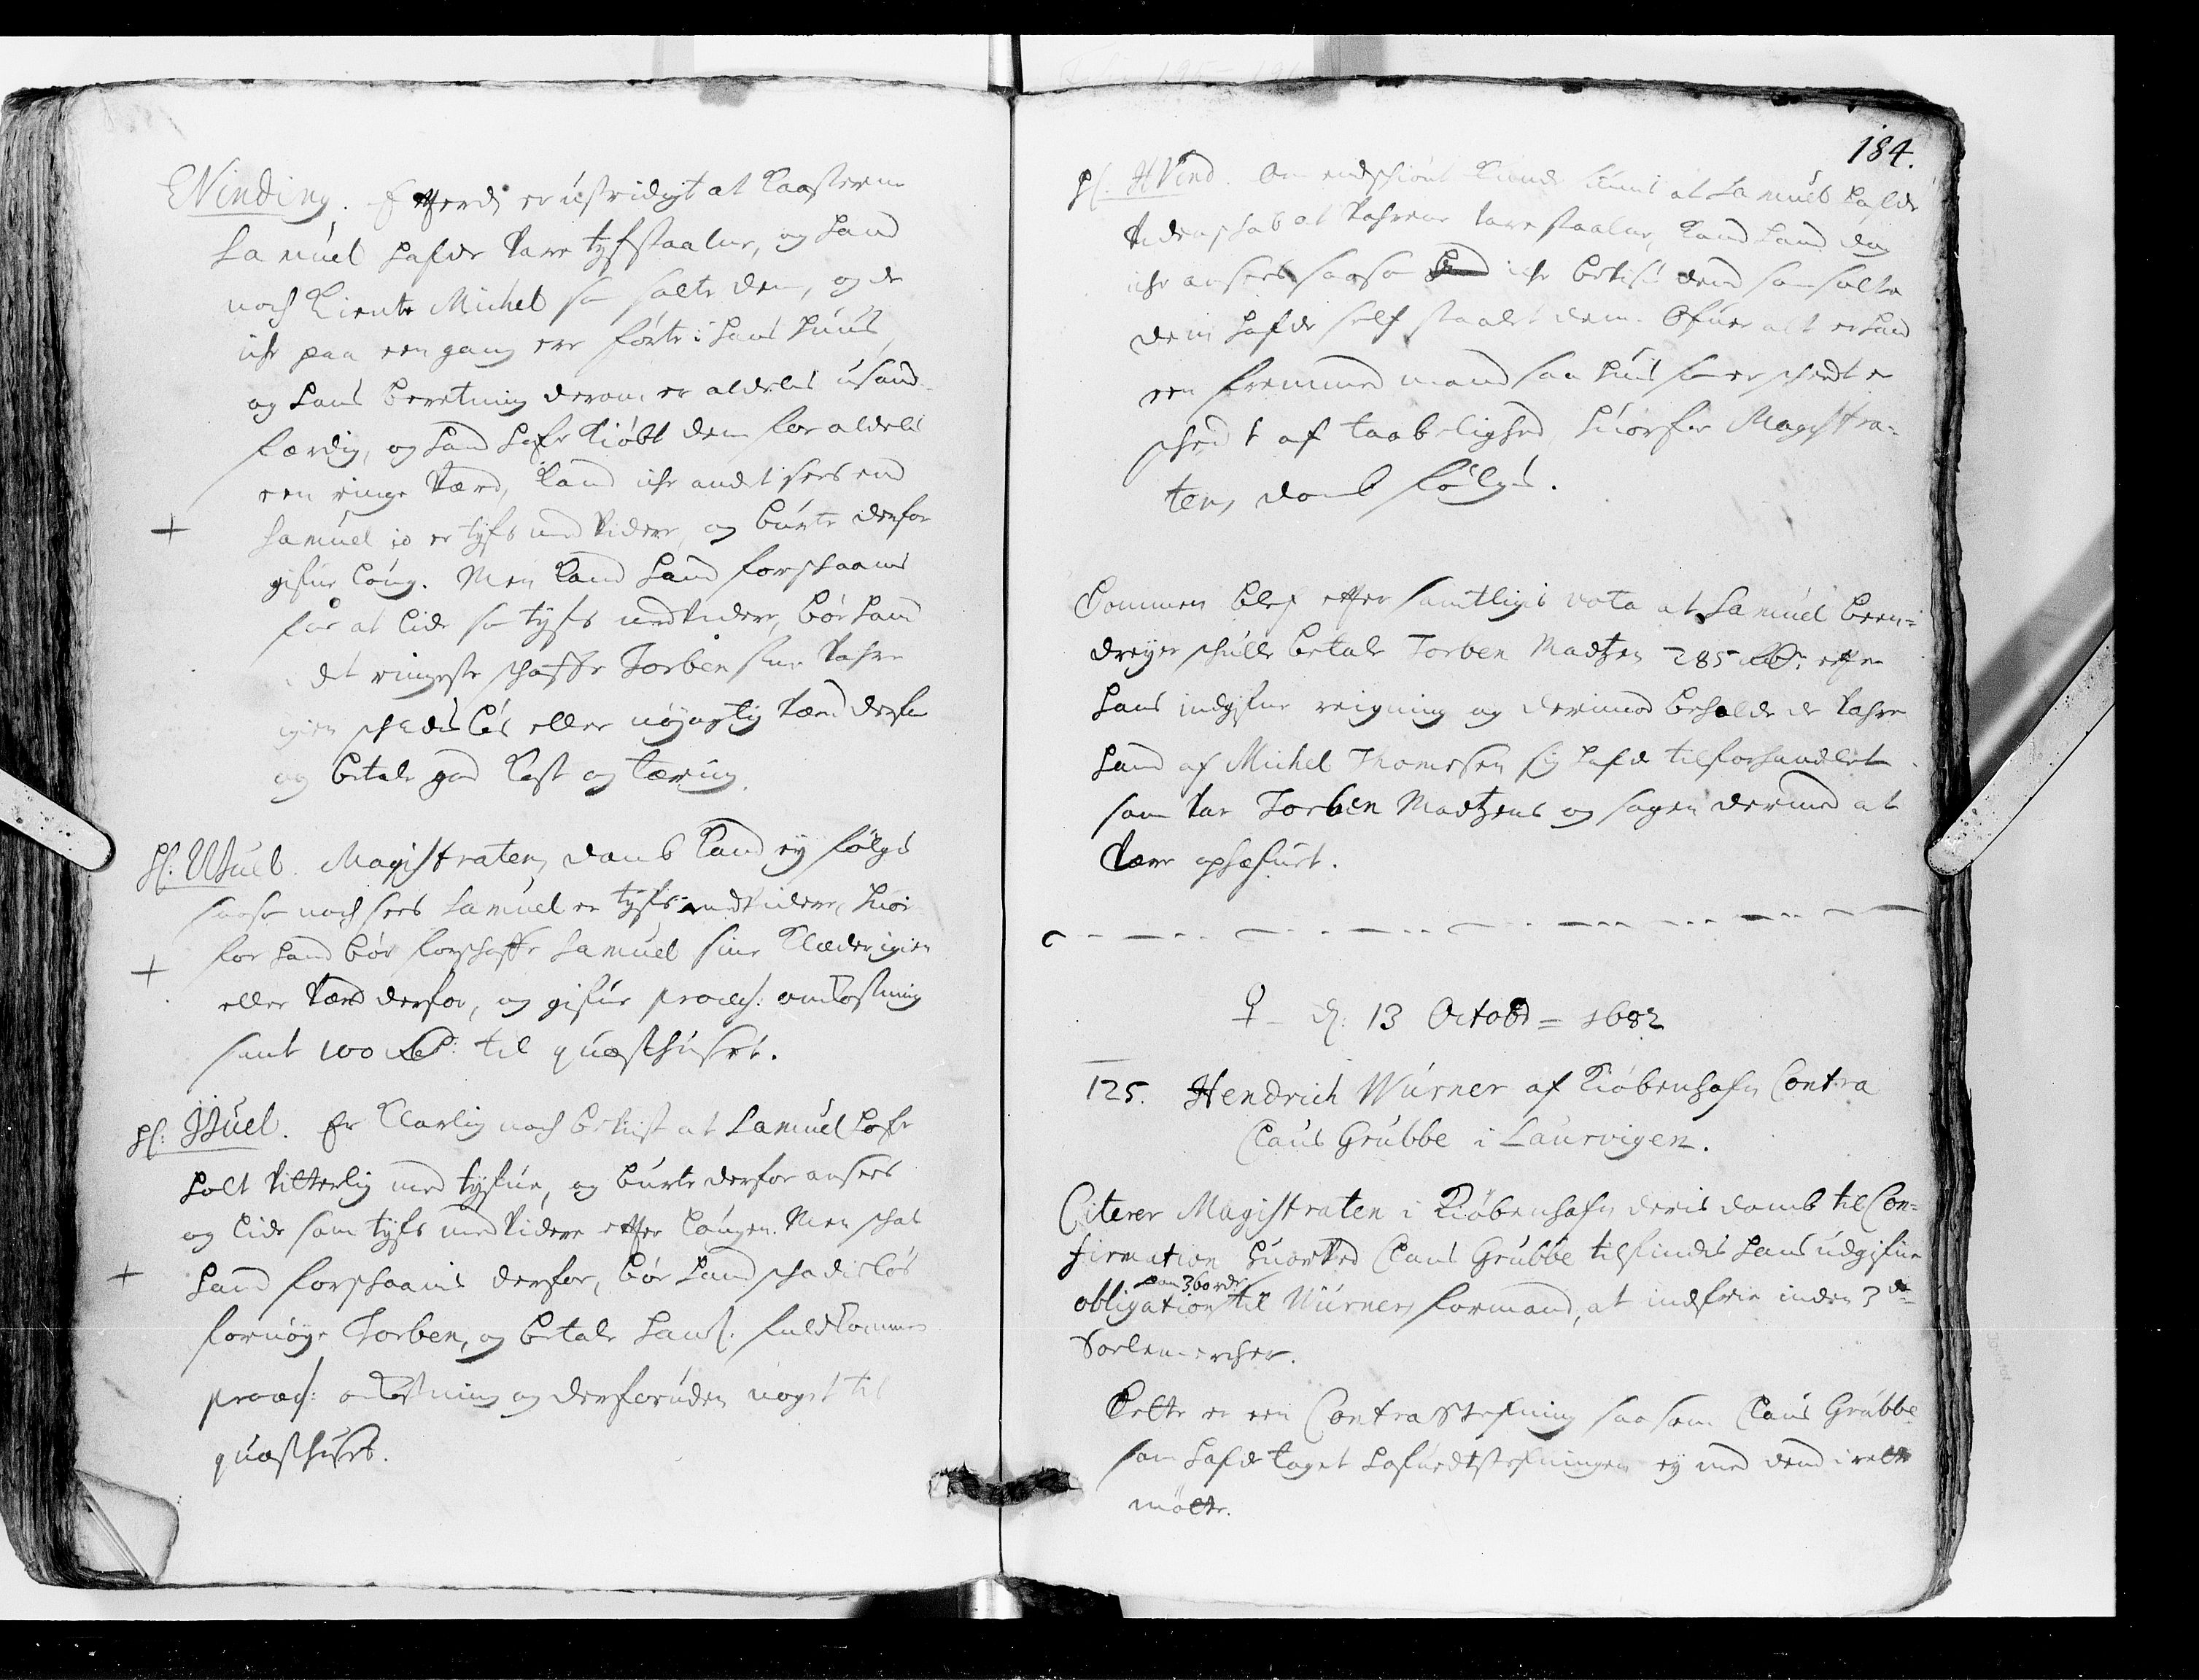 Winding. Efterdj er ustridigt at Kaasterne
Samuel hafde vare tyfstaalne, og hand
noch Kiente Michel som solte dem, og de
iche paa een gang ere førte i hans huus,
og hans beretning derom er aldelis usand-
færdig, og hand hafr Kiøbt dem for aldelis
een ringe værd, Kand iche andet sees end
Samuel jo er tyfs medvidere, og burte derfor
gifue løng. Men Kand hand forskaanis
for at lide som tyfs medvidere, bør hand
i det ringeste schaffe Torben sine vahre
igien schadisløs eller nøyagtig værd derfor
og betale god Kost og tæring.
Hs: WJuel. Magistratens domb Kand ey følgis
saasom noch sees Samuel er tyfs medvidere, huor
for hand bør forschaffe Samuel sine Klæder igien
eller værd derfor, og gifue process: omKostning
samt 100 Rdr: til quæsthuset.
Hs: JJuel. Er Klarlig noch beviist at Samuel hafr
holt vitterlig med tyfuen, og burte derfor ansees
og lide som tyfs medvidere efter Lougen. Men schal
hand forschaanis derfor, bør hand schadisløs
fornøye Torben, og betale hans fuldKommen
process: omKostning og derforuden noget til
quæsthuset.
184.
Hs. HVind. Om endschiønt Kiende kunde at Samuel hafde
videnschab at vahrene vare staalne, Kand hand dog
iche ansees saasom hand iche beviist dend som solte
dem hafde self staalet dem. Ofuer alt er hand
een fremmed mand saa huis som er scheedt er
scheedt af taabelighed, huorfor Magistra-
tens domb følgis.
Dommen blef efter samtligis vota at Samuel Been-
dreyer schulle betale Torben Madtzen 285 Rdr: efter
hans indgifne reigning og derimod beholde de vahre
hand af Michel Thomesen sig hafde tilforhandlet
som var Torben Madtzens og sagen dermed at
være ophæfuet.
♀ d: 13 Octobr = 1682
125. Hendrich Würner af Kiøbenhafn Contra
Claus Grubbe i Laurvigen.
Citerer Magistraten i Kiøbenhafn deris domb til Con-
firmation huorved Claus Grubbe tilfindis hans udgifne
paa 360 rdr
obligation til Würners formand, at indfrie inden 3de
Solemercher.
Dette er een Contra Stefning saasom Claus Grubbe
som hafde taget hofuedstefningen ey med dend i rette
møtte.